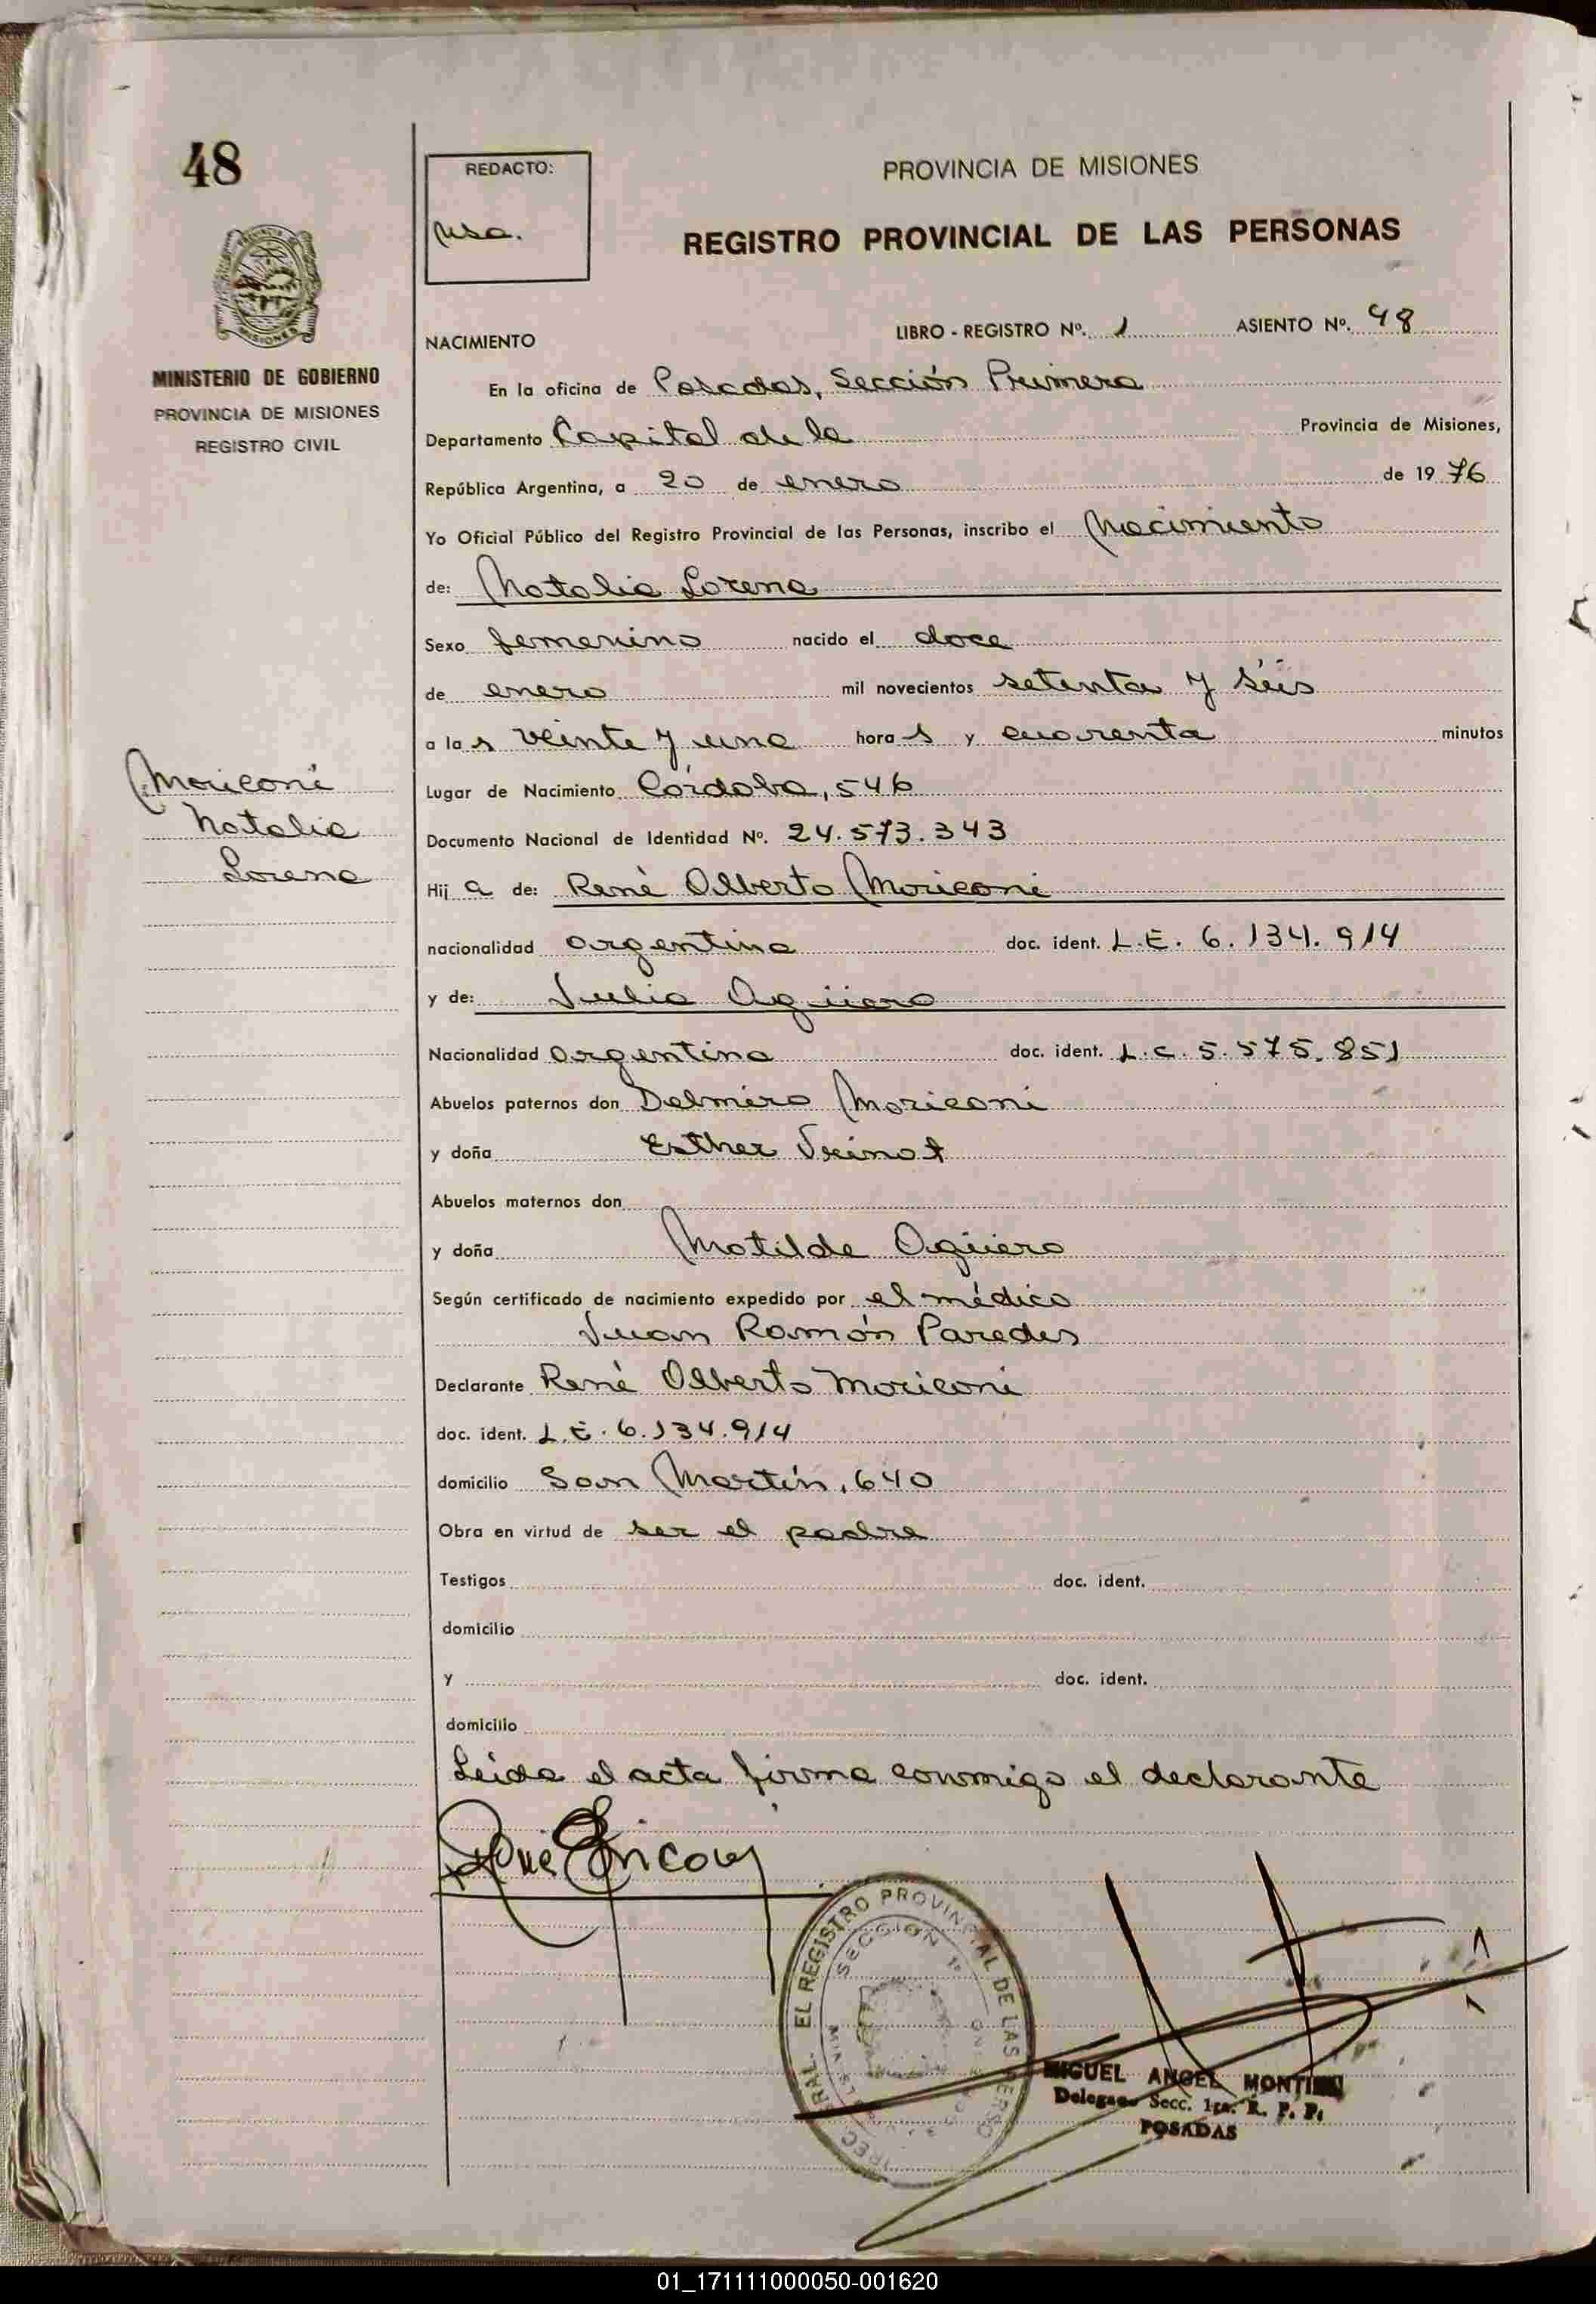 48
REDACTO:
PROVINCIA DE MISIONES
REGISTRO PROVINCIAL DE LAS PERSONAS
MINISTERIO DE GOBIERNO
PROVINCIA DE MISIONES
REGISTRO CIVIL
NACIMIENTO LIBRO - REGISTRO Nº. 1 ASIENTO Nº. 48
En la oficina de Posadas, Sección Primera
Departamento Capital de la Provincia de Misiones,
República Argentina, a 20 de enero de 1976
Yo Oficial Público del Registro Provincial de las Personas, inscribo el Nacimiento
de: Natalia Lorena
Sexo femenino nacido el doce
de enero mil novecientos setenta y séis
a las veinte y una horas y cuarenta minutos
Moriconi
Natalia
Lorena
Lugar de Nacimiento Córdoba, 546
Documento Nacional de Identidad Nº. 24.573.343
Hija de: René Alberto Moriconi
nacionalidad argentina doc. ident. L.E. 6.134.914
y de: Julia Agüero
Nacionalidad argentina doc. ident. L.C. 5.575.851
Abuelos paternos don Delmiro Moriconi
y doña Esther
Abuelos maternos don
y doña Matilde Agüero
Según certificado de nacimiento expedido por el médico
Juan Ramón Paredes
Declarante René Alberto Moriconi
doc. ident. L.E. 6.134.914
domicilio San Martín, 640
Obra en virtud de ser el padre
Testigos doc. ident.
domicilio
y doc. ident.
domicilio
Leida el acta firma conmigo el declarante
EL REGISTRO PROVINCIAL DE LAS
SECCION 1ª
MIGUEL ANGEL
Delegado Secc. 1ra. R. P. P.
POSADAS
01_171111000050-001620